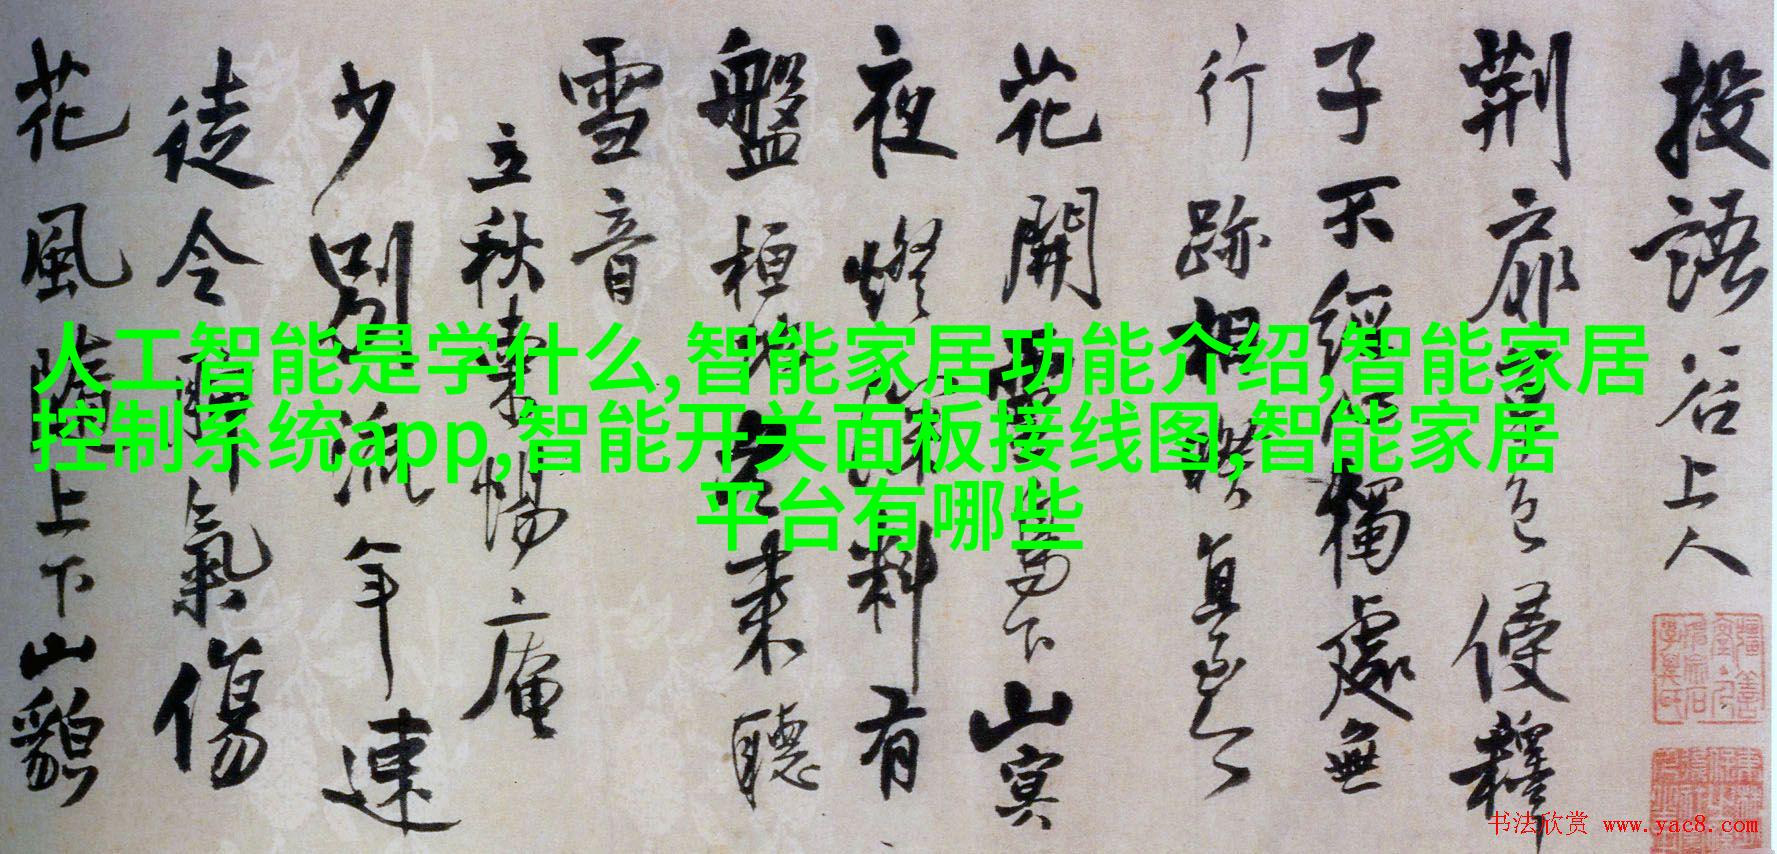 投語谷上人
荆扉草色侵釋
子不經獨處無
行跡相
花開山寞
夜燈料有
盤桓來聽
雪音
立秋柬惕庵
少別流年速
徒令氣傷
花風隨上下山貌
人工智能是学什么,智能家居功能介绍,智能家居
控制系统app,智能开关面板接线图,智能家居
平台有哪些
书法欣赏 www.yac8.com